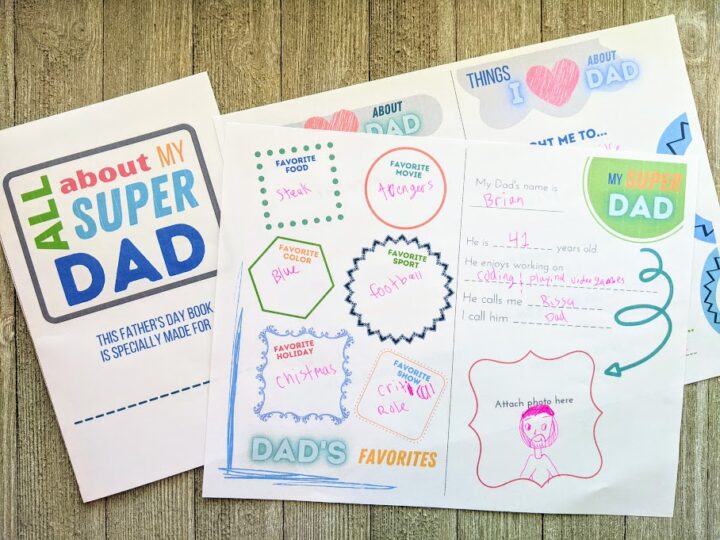 ALL about MY
SUPER
DAD
THIS FATHER'S DAY BOOK
IS SPECIALLY MADE FOR
ABOUT
DAD
THINGS
I ABOUT
DAD
GHT ME TO...
FAVORITE
FOOD
Steak
FAVORITE
MOVIE
Avengers
FAVORITE
COLOR
Blue
FAVORITE
SPORT
football
FAVORITE
HOLIDAY
Chistmas
FAVORITE
SHOW
critical
Role
DAD'S FAVORITES
MY SUPER
DAD
My Dad's name is
Brian
He is 41 years old.
He enjoys working on
coding & playing video games
He calls me Bissy
I call him Dad
Attach photo here